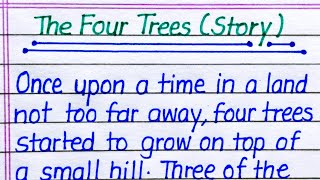 The Four Trees (Story)
Once upon a time in a land
not too far away, four trees
started to grow on top of
a small hill. Three of the